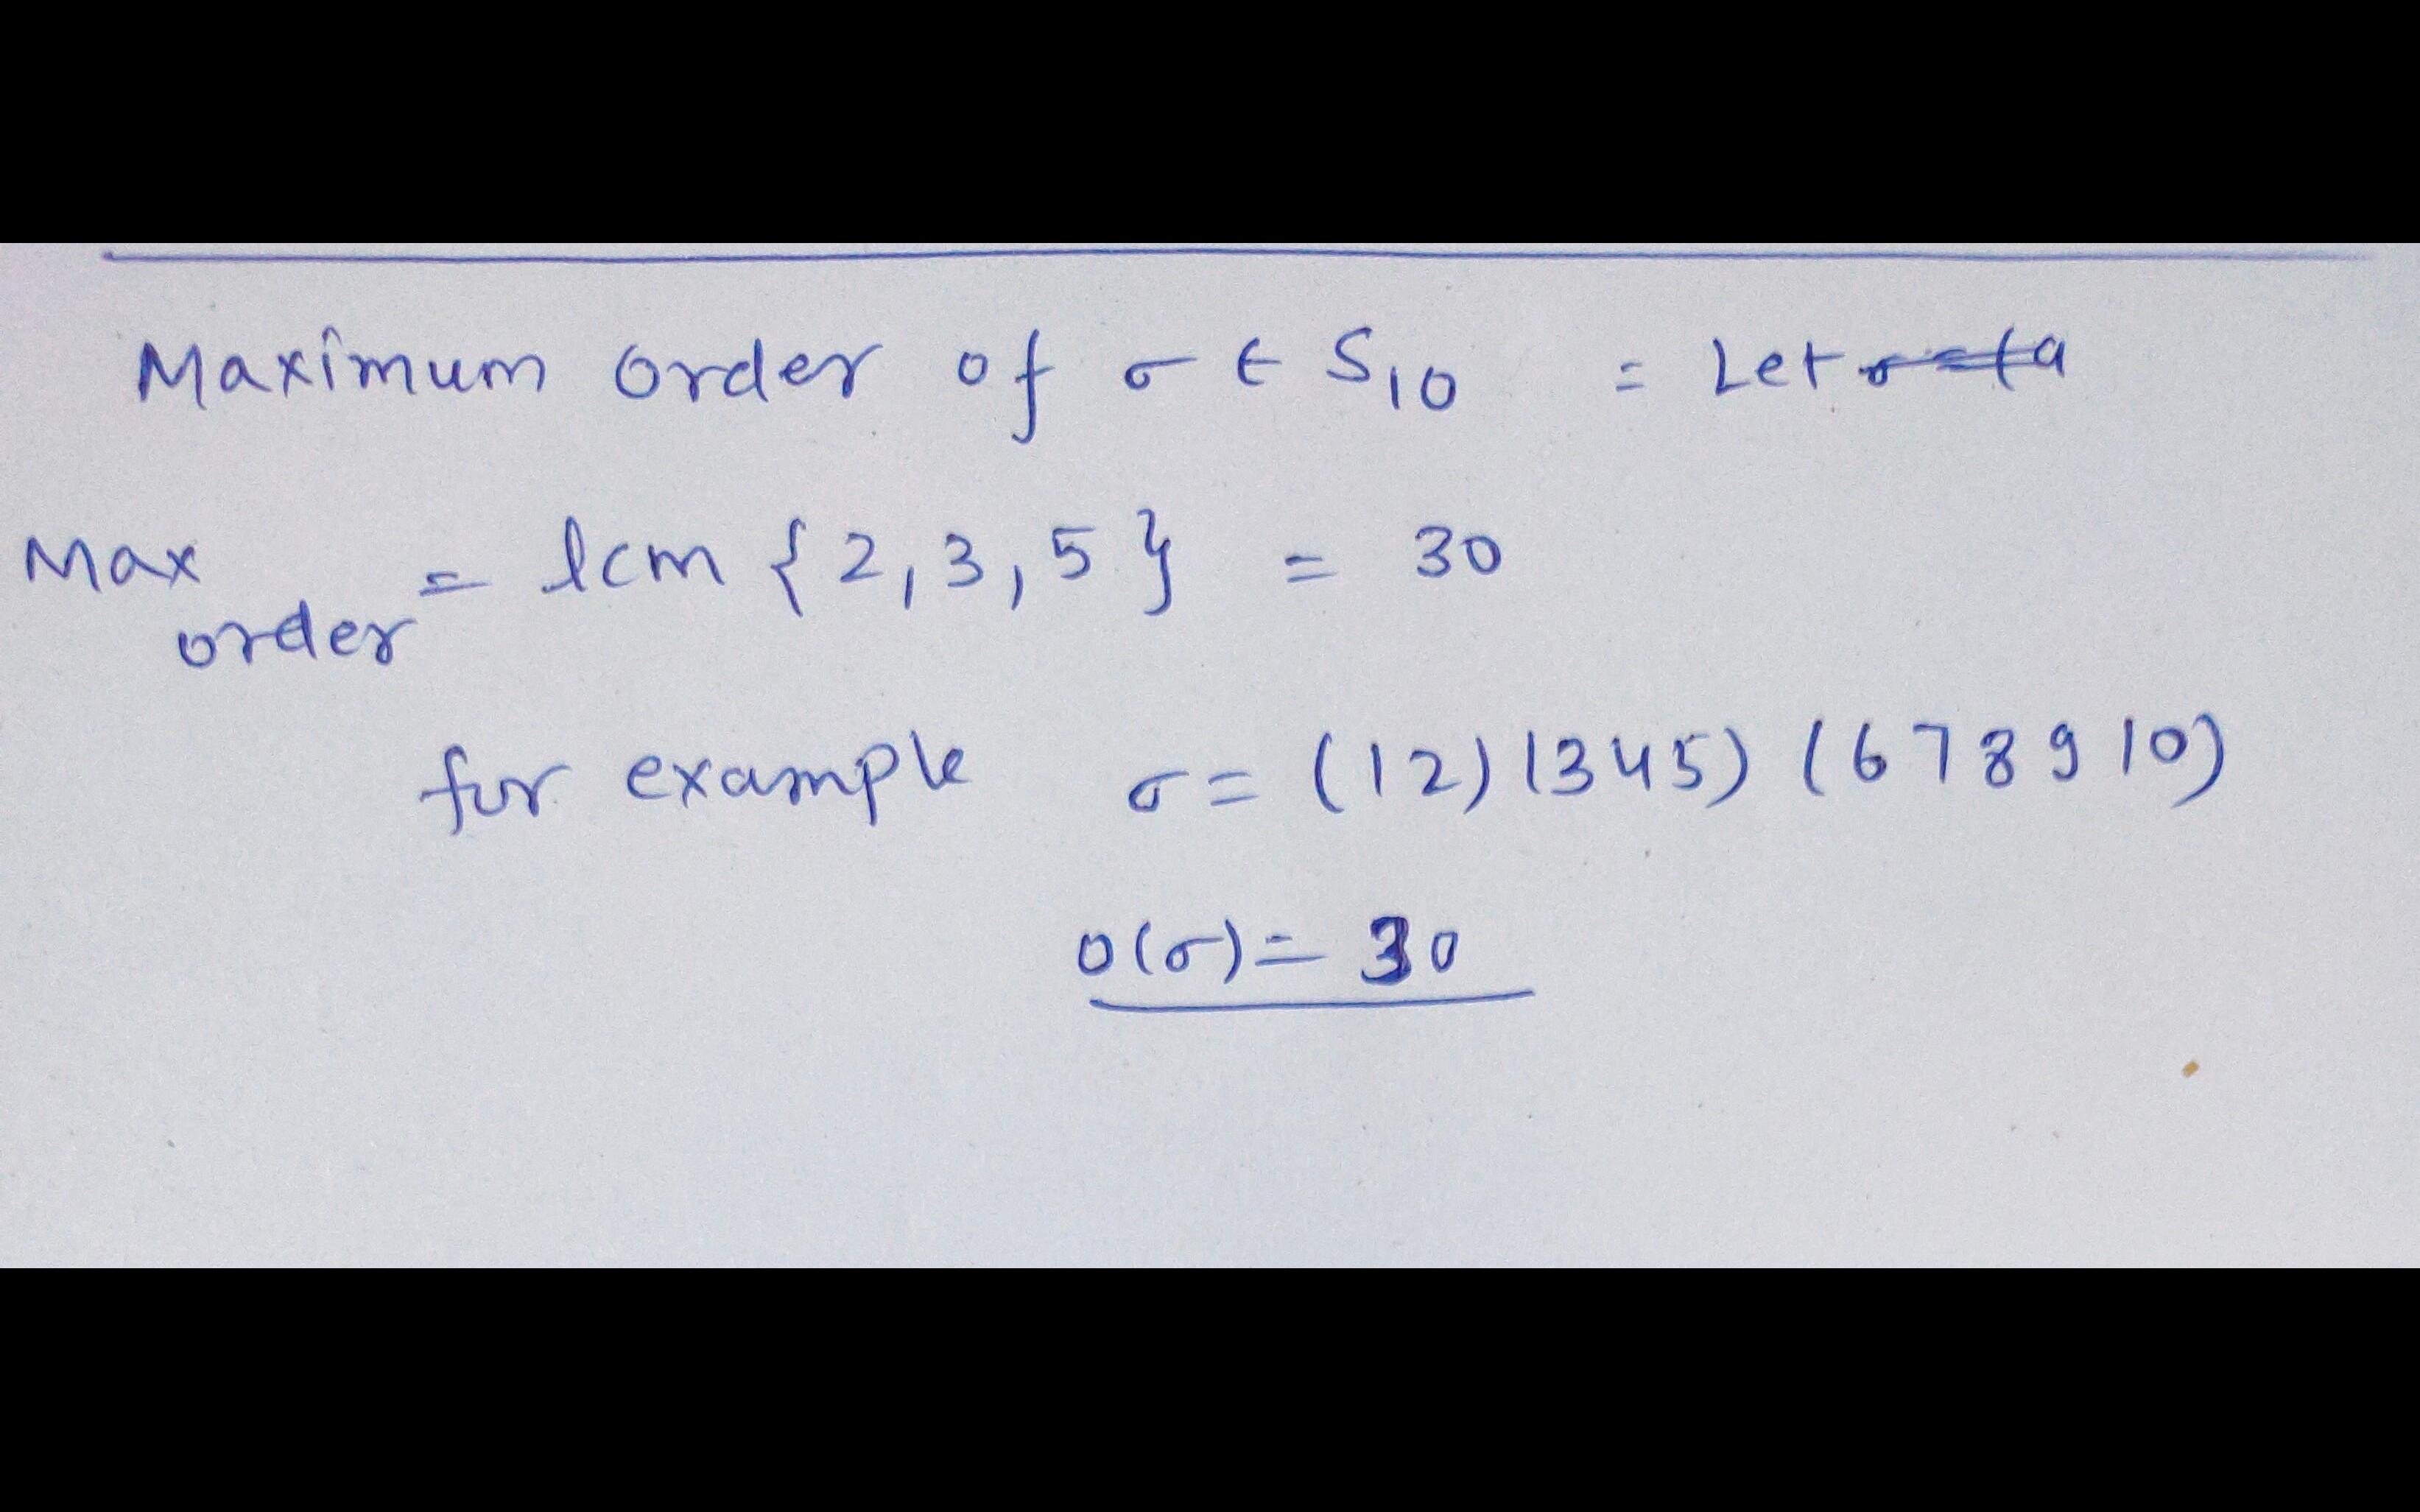 Maximum order of σ ∈ S₁₀ = Let
Max order = lcm {2,3,5} = 30
for example σ = (12)(345)(678910)
o(σ) = 30